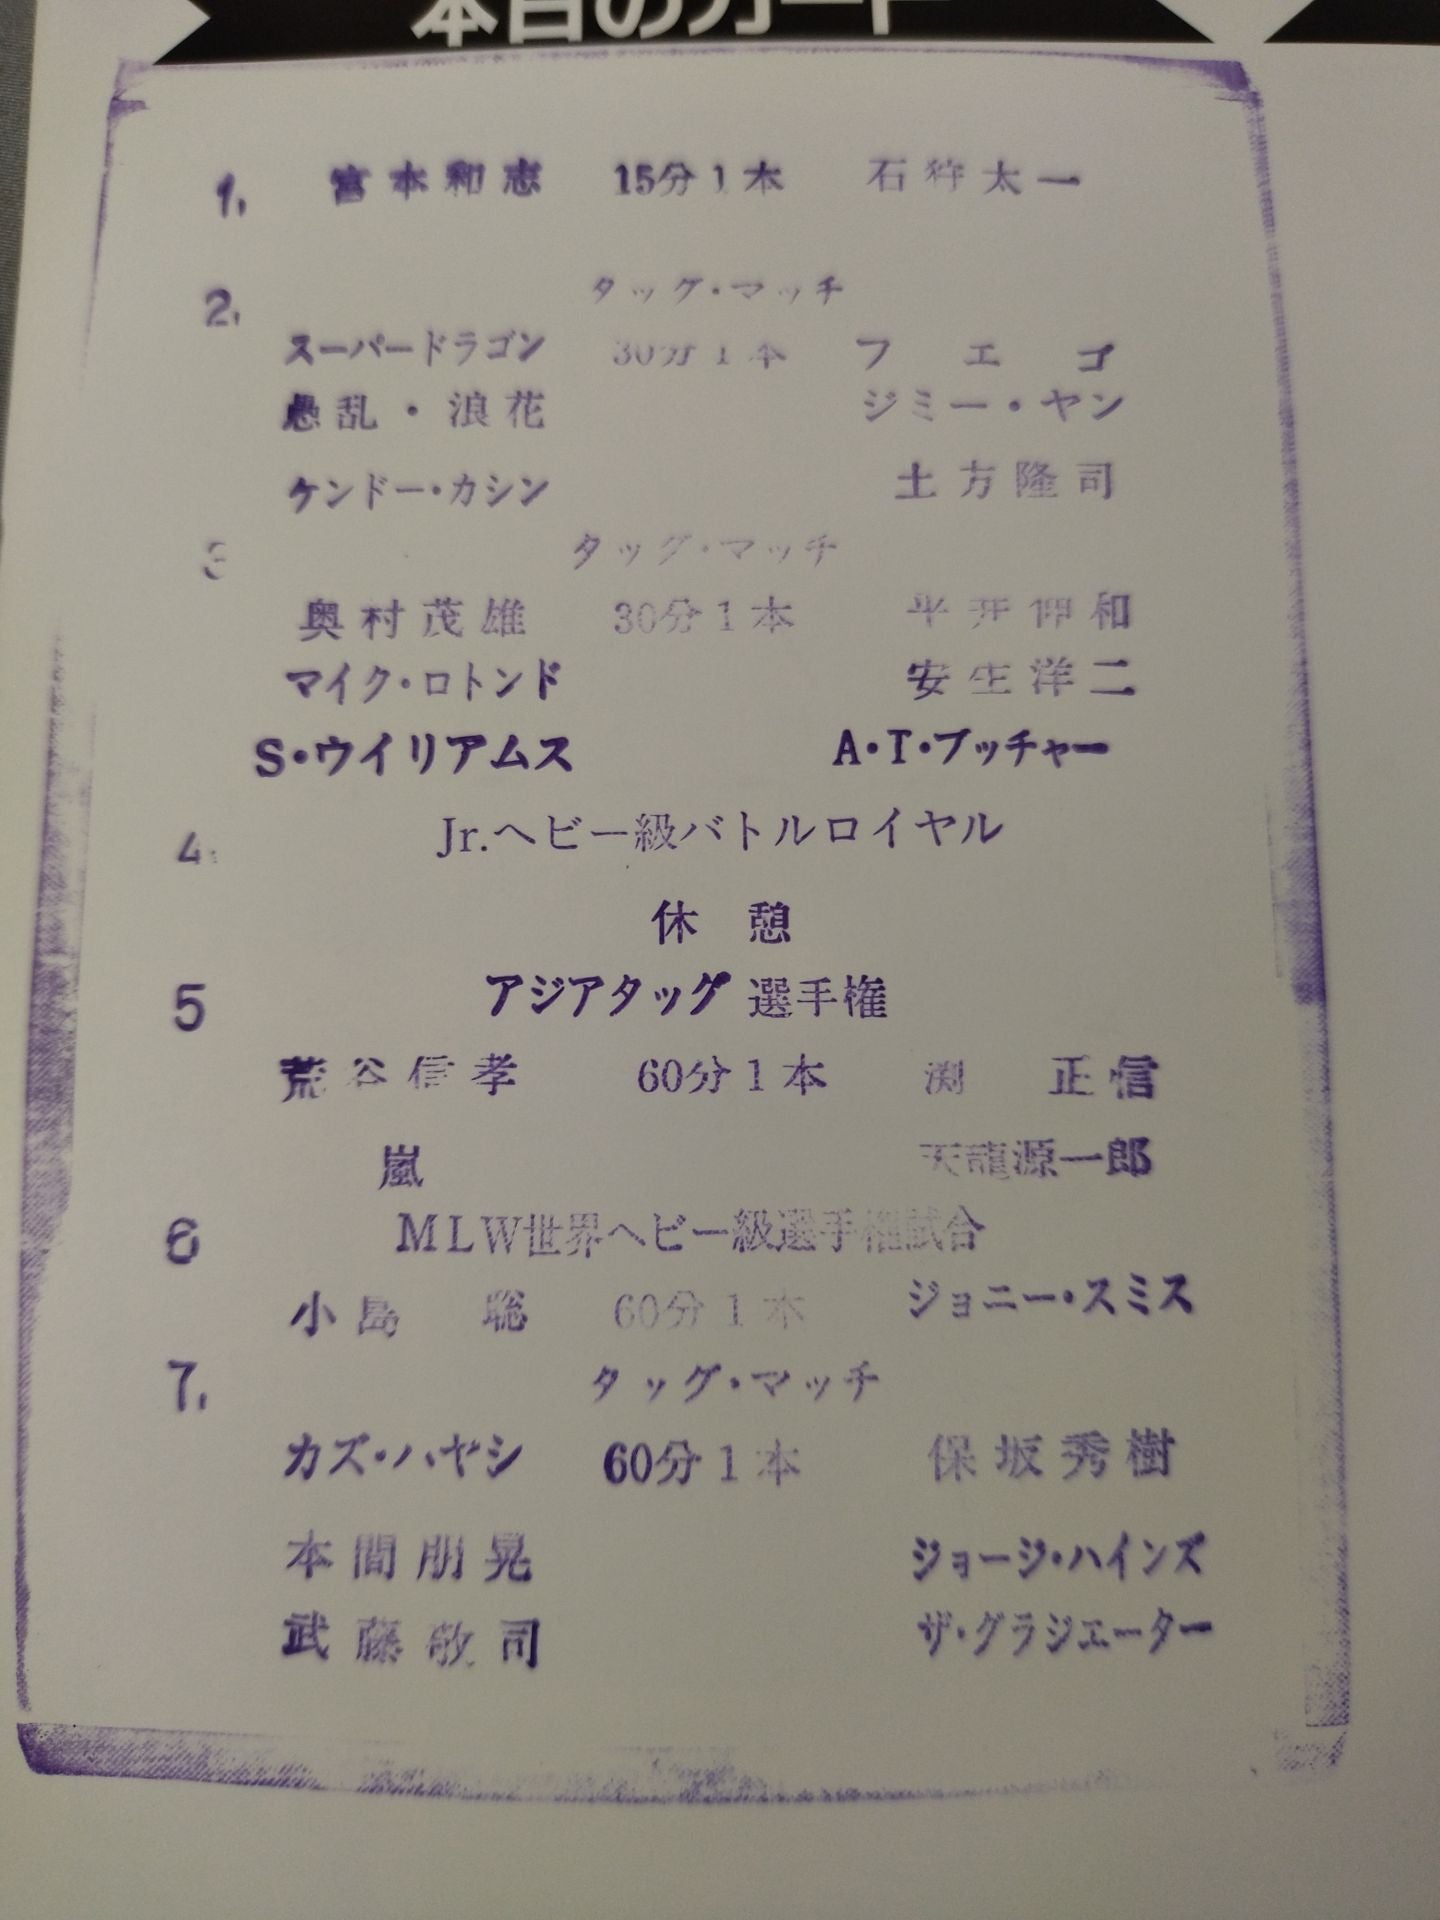 本日のカード
1. 宮本和志 15分1本 石狩太一
2. タッグ・マッチ
スーパードラゴン 30分1本 フエゴ
愚乱・浪花 ジミー・ヤン
ケンドー・カシン 土方隆司
3 タッグ・マッチ
奥村茂雄 30分1本 平井伸和
マイク・ロトンド 安生洋二
S・ウイリアムス A・T・ブッチャー
4. Jr.ヘビー級バトルロイヤル
休憩
5 アジアタッグ選手権
荒谷信孝 60分1本 渕正信
嵐 天龍源一郎
6 MLW世界ヘビー級選手権試合
小島聡 60分1本 ジョニー・スミス
7. タッグ・マッチ
カズ・ハヤシ 60分1本 保坂秀樹
本間朋晃 ジョージ・ハインズ
武藤敬司 ザ・グラジエーター